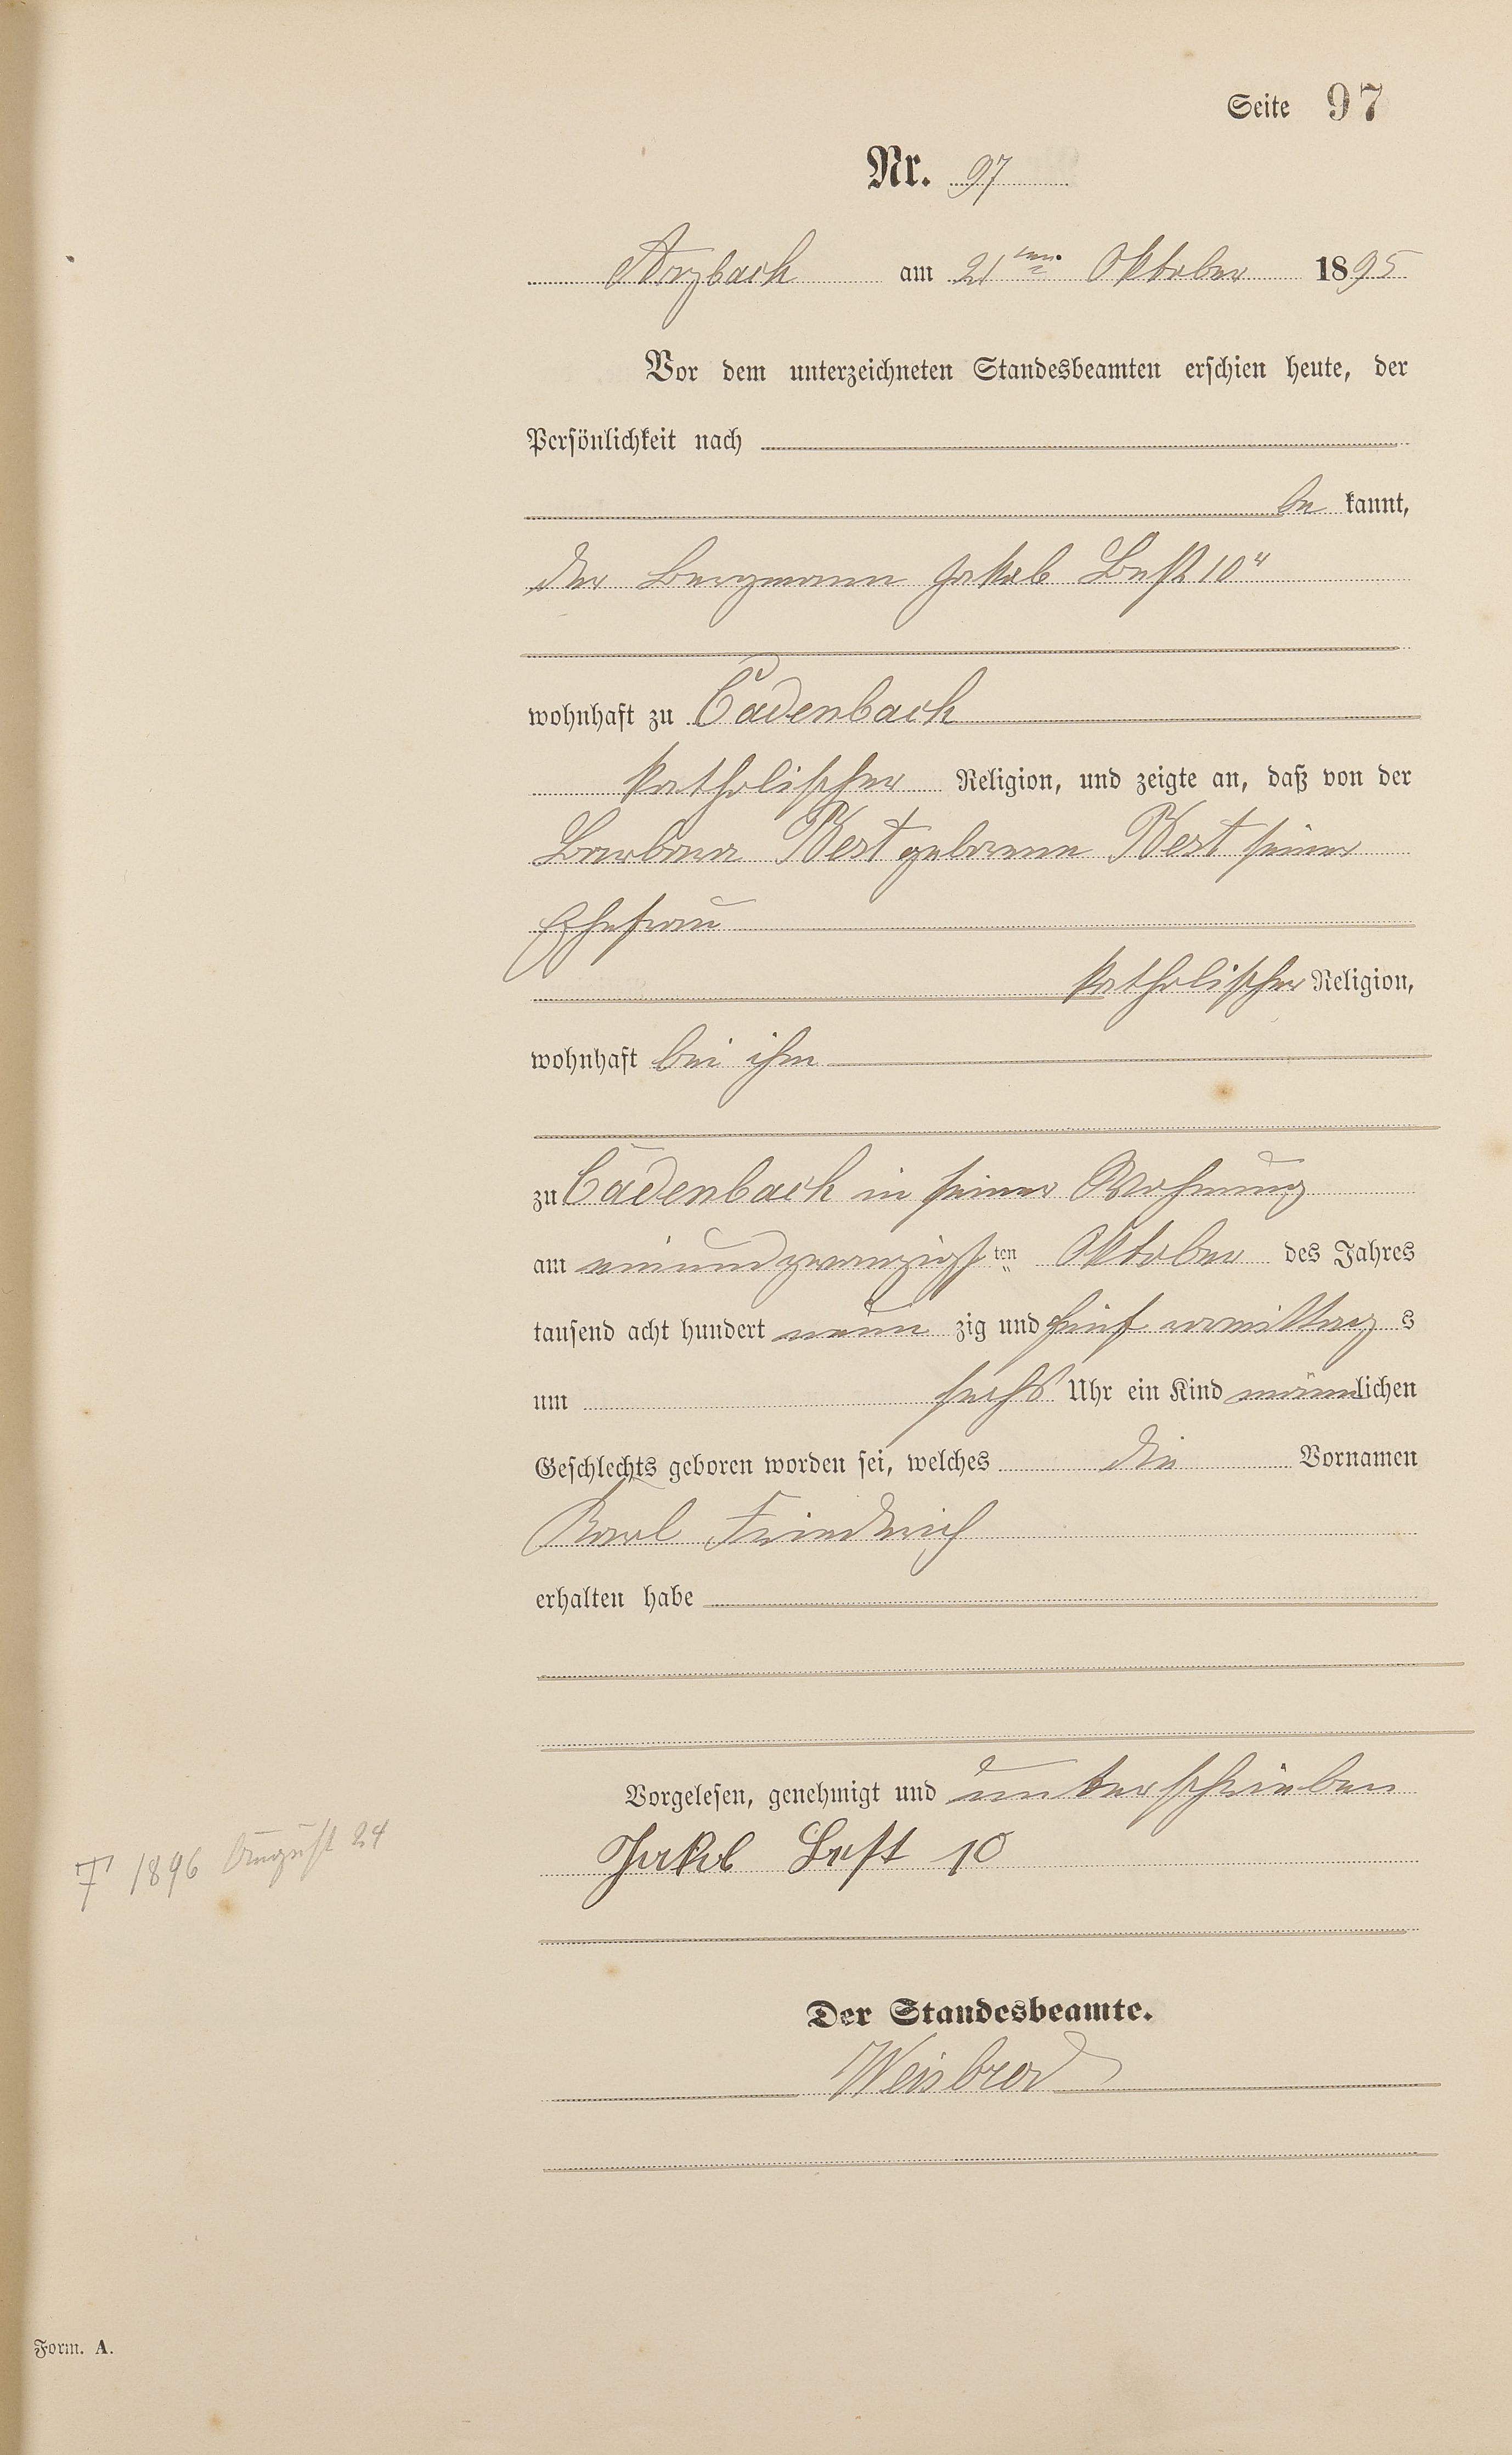 Seite 97
Nr. 97
Arzbach am 21ten Oktober 1895
Vor dem unterzeichneten Standesbeamten erschien heute, der
Persönlichkeit nach
be kannt,
der Bergmann Jakob Best 10"
wohnhaft zu Cadenbach
katholischer Religion, und zeigte an, daß von der
Barbara Best geborene Best seiner
Ehefrau
katholischer Religion,
wohnhaft bei ihm
zu Cadenbach in seiner Wohnung
am einundzwanzigsten Oktober des Jahres
tausend acht hundert neun zig und fünf vormittag s
um sechs Uhr ein Kind männlichen
Geschlechts geboren worden sei, welches die Vornamen
Karl Friedrich
erhalten habe
Vorgelesen, genehmigt und unterschrieben
Jakob Best 10
† 1896 August 24
Der Standesbeamte.
Weisbrod
Form. A.